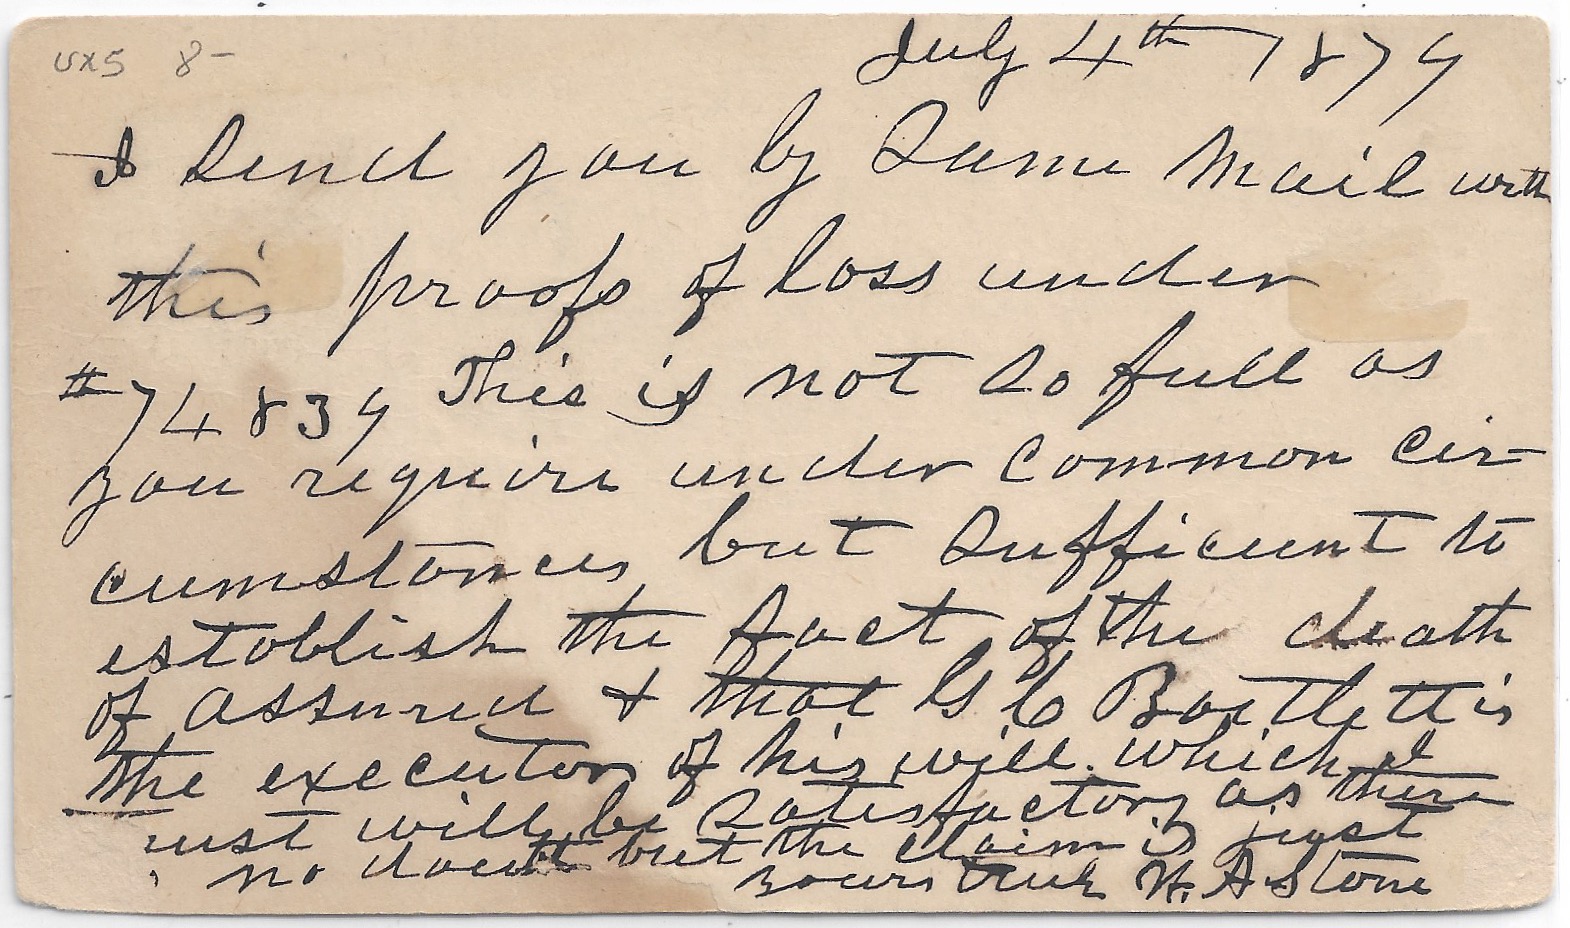 UX5 8-
July 4th 1879
I Send you by Same Mail with
this proofs of loss under
# 74839 This is not so full as
you require under common cir-
cumstances but sufficient to
establish the fact of the death
of assured & that G C Bartlett is
the executor of his will. which I
trust will be satisfactory as there is
no doubt but the claim is just
yours truly H. A Stone